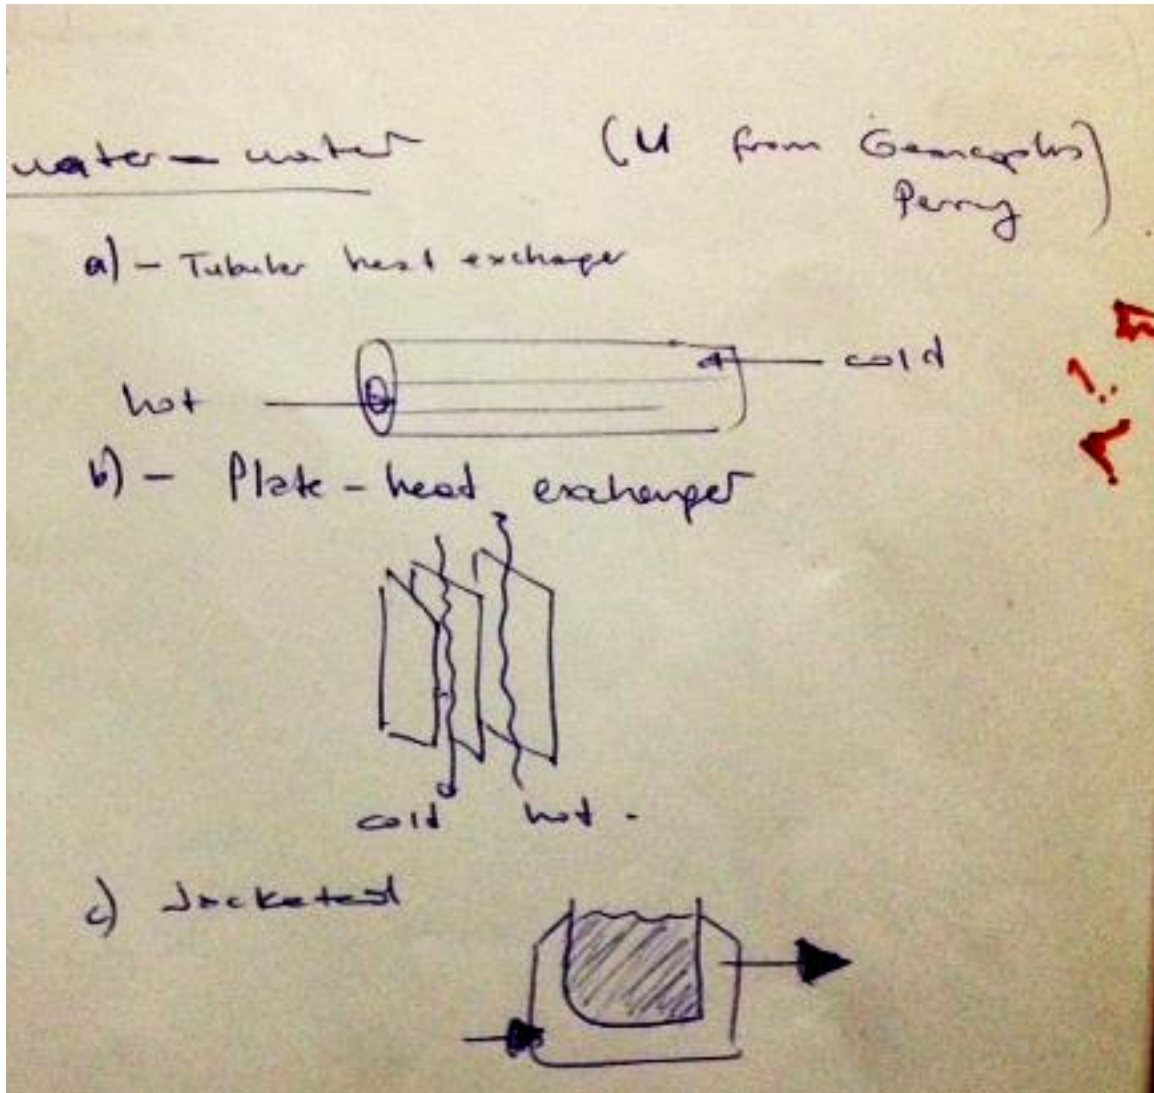 water - water
(U from Geancoplis
Perry)
a) - Tubular heat exchanger
hot
cold
b) - Plate - heat exchanger
cold hot -
c) Jacketed